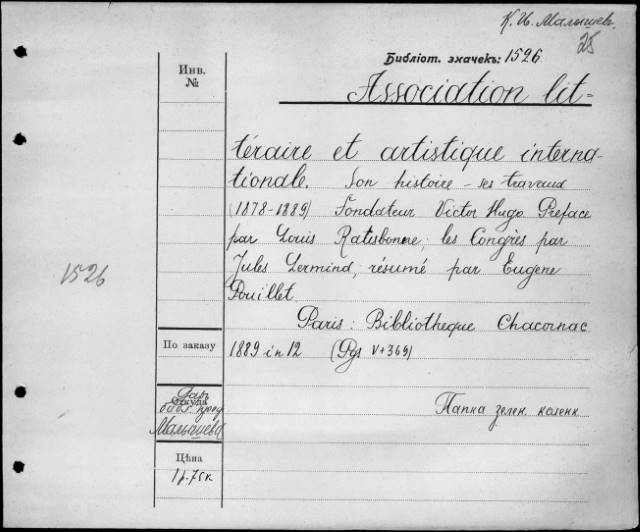 К. И. Малышев.
28
Библіот. значекъ: 1526.
Инв.
№
Association lit=
téraire et artistique interna-
tionale. Son histoire – ses travaux
(1878-1889) Fondateur Victor Hugo. Préface
par Louis Ratisbonne; les Congrès par
1526
Jules Lermind, résumé par Eugene
Pouillet.
Paris: Bibliotheque Chacornac.
По заказу
1889 in 12 (Pgs V+369)
Даръ
Откуда
Малышева
Папка зелен. коленк.
Цѣна
1 р. 75 к